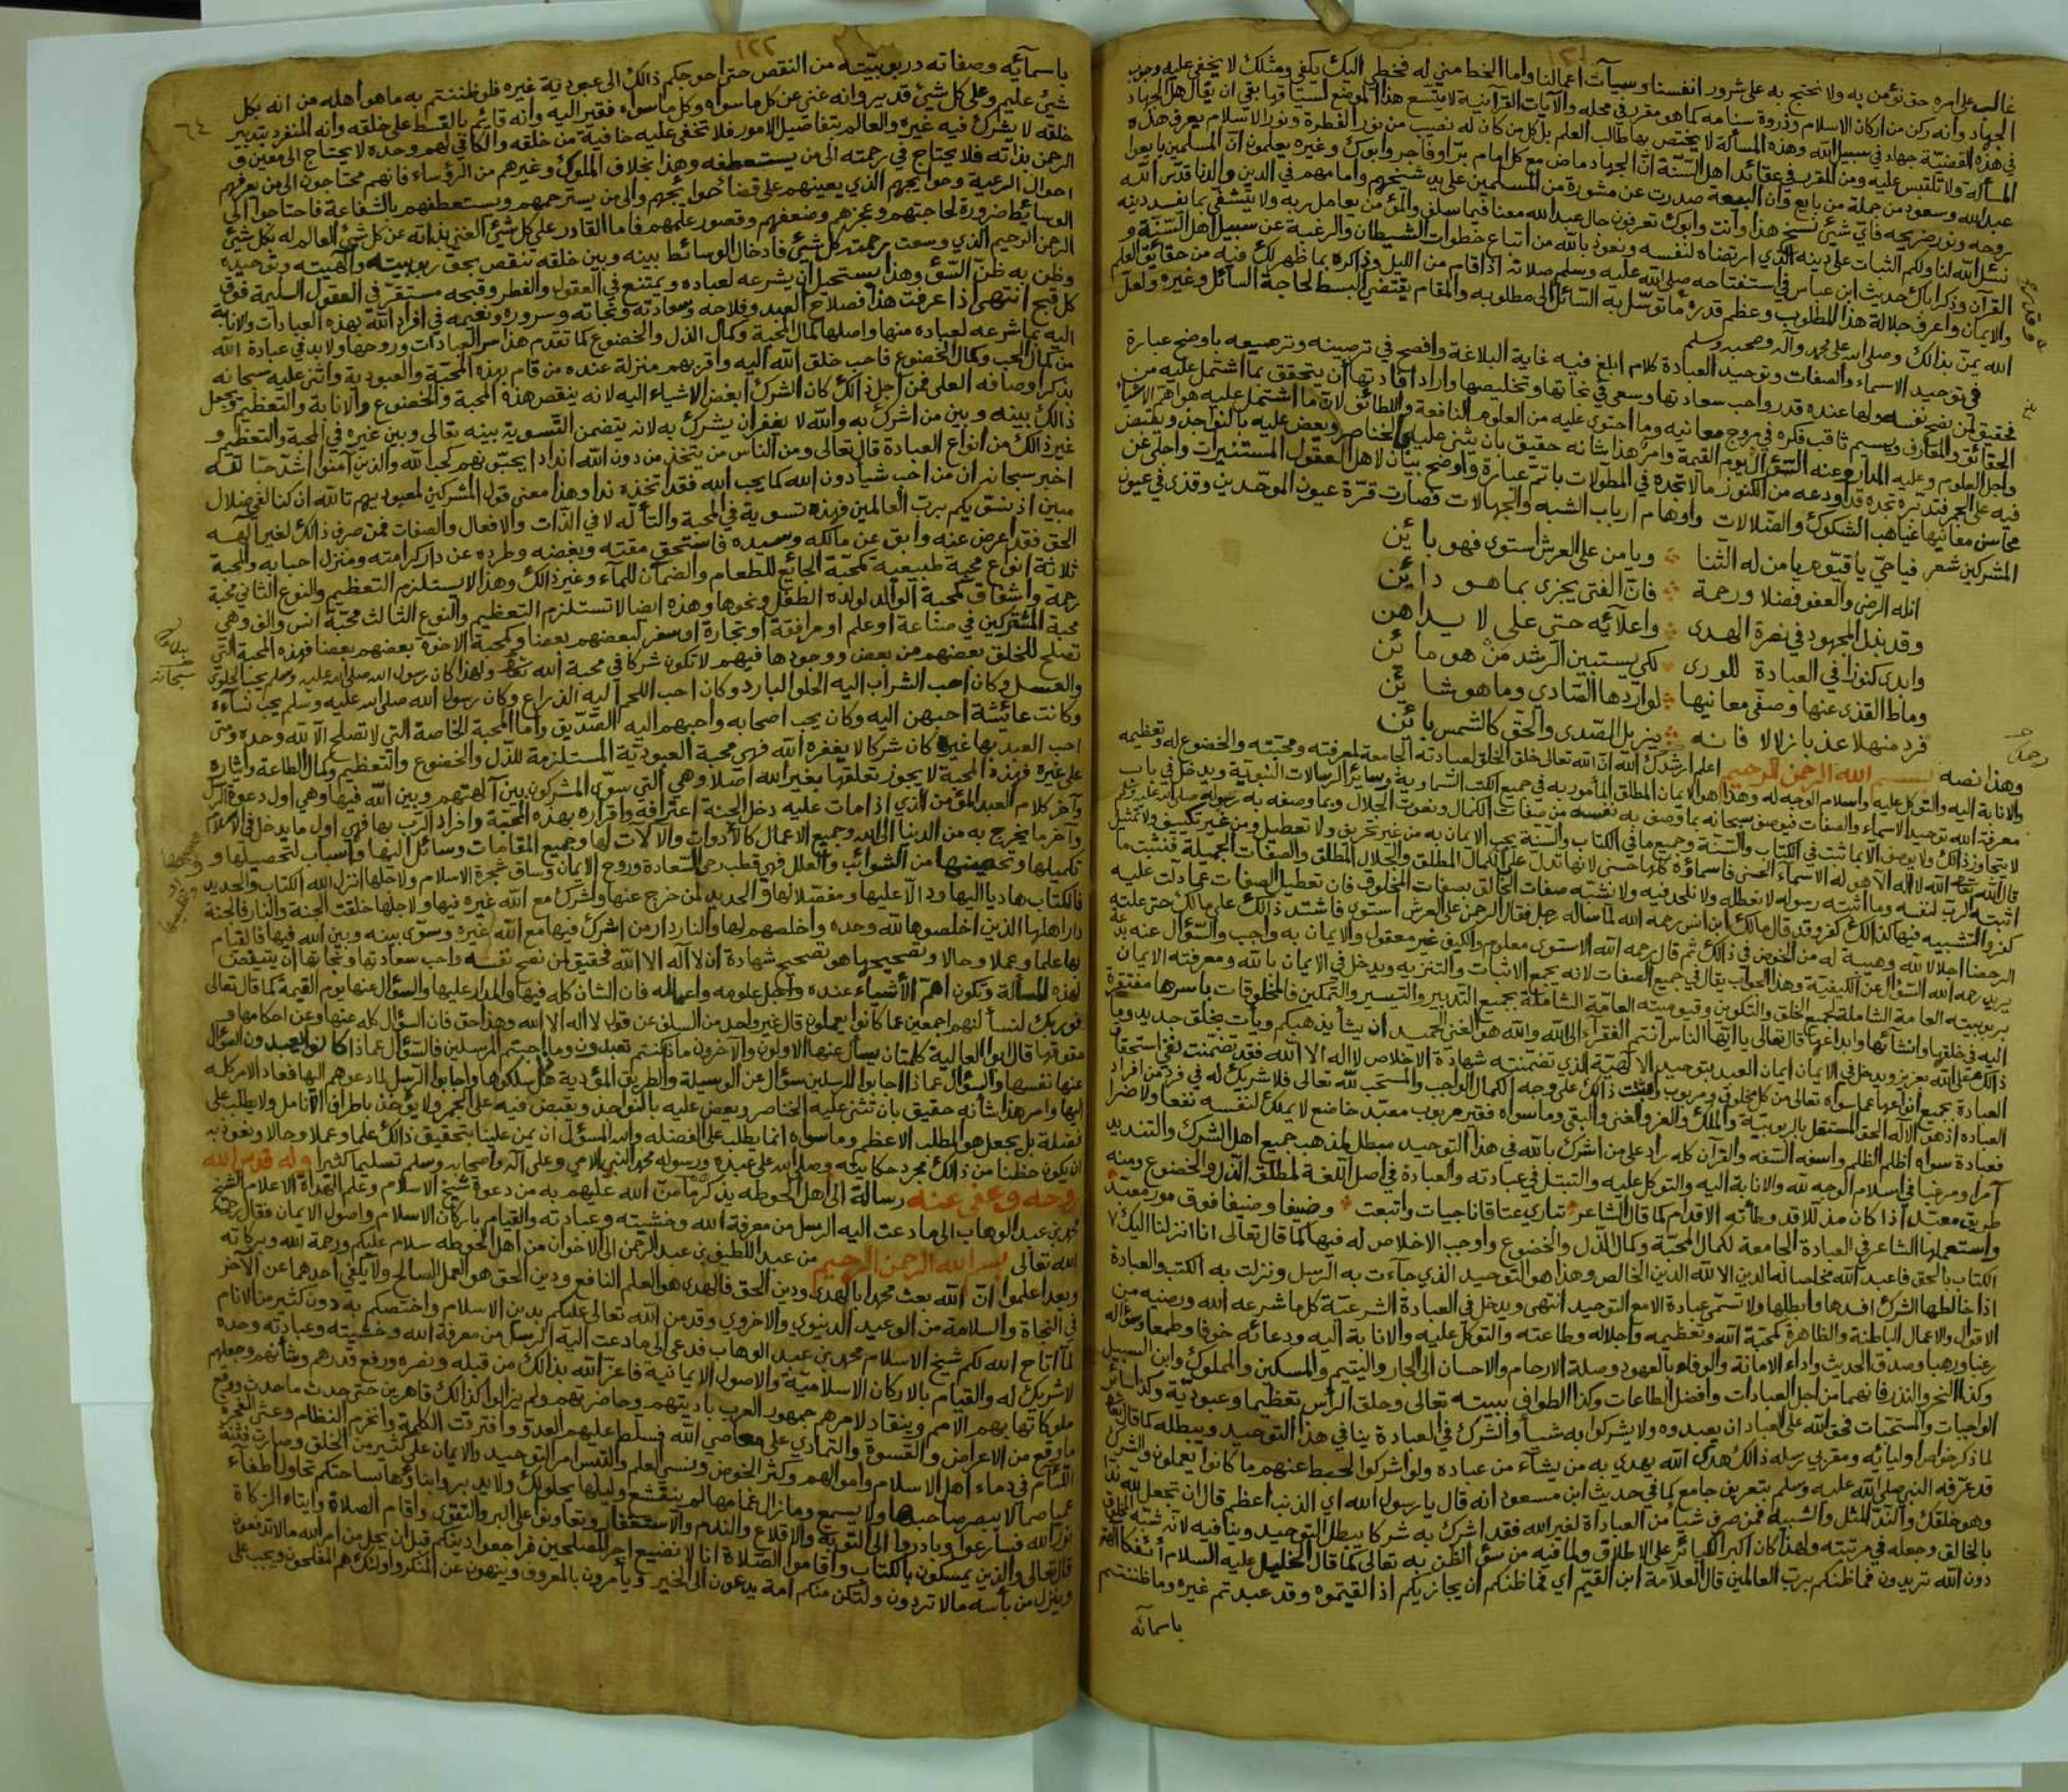 غالب على امره حق نؤمن به ولا نحتج به على شرور انفسنا وسيآت اعمالنا واما الخط مني له فخطي اليك يكفي ومثلك لا يخفى عليه وجوب
الجهاد وانه ركن من اركان الاسلام وذروة سنامه كما هو مقرر في محله والآيات القرآنية لا يتسع هذا الموضع لسياقها بقي ان يقال هل الجهاد
في هذه القضية جهاد في سبيل الله وهذه المسألة لا يختص بها طالب العلم بل كل من كان له نصيب من نور الفطرة ونور الاسلام يعرف هذه
المسألة ولا تلتبس عليه ومن المقرر في عقائد اهل السنة ان الجهاد ماض مع كل امام برا او فاجر وابوك وغيره يعلمون ان المسلمين بايعوا
عبد الله وسعود من جملة من بايع وان البيعة صدرت عن مشورة من المسلمين على يد شيخهم وامامهم في الدين والدنا قدس الله
روحه ونور ضريحه فاي شيء نسخ هذا وانت وابوك تعرفون حال عبد الله معنا فيما سلف والمؤمن يعامل ربه ولا يتشفى بما يفسد دينه
نسئل الله لنا ولكم الثبات على دينه الذي ارتضاه لنفسه ونعوذ بالله من اتباع خطوات الشيطان والرغبة عن سبيل اهل السنة و
القرآن وذكرا بك حديث ابن عباس في استفتاحه صلى الله عليه وسلم صلاته اذا قام من الليل وذاكره بما ظهر لك فيه من حقائق العلم
والايمان واعرف جلالة هذا المطلوب وعظم قدره ما توسل به السائل الى مطلوبه والمقام يقتضي البسط لحاجة السائل وغيره ولعل
الله يمن بذالك وصلى الله على محمد وآله وصحبه وسلم
في توحيد الاسماء والصفات وتوحيد العبادة كلام ابلغ فيه غاية البلاغة وافصح في ترصينه وترصيعه باوضح عبارة
فحقيق لمن نصح نفسه ولها عنده قدر واحب سعادتها وسعى في نجاتها وتخليصها واراد افادتها ان يتحقق بما اشتمل عليه من
الحقائق والمعارف ويسيم ثاقب فكره في مروج معانيه وما احتوى عليه من العلوم النافعة واللطائف لان ما اشتمل عليه هو اهم الاشياء
واجل العلوم وعليه المدار وعنه السؤال يوم القيمة وامر هذا شانه حقيق بان يثنى عليه الخناصر ويعض عليه بالنواجذ ويقبض
فيه على الجمر فتدبره تجده قد اودعه من الكنوز مالا تجده في المطولات باتم عبارة واوضح بيان لاهل العقول المستنيرات واجلى عن
محاسن معانيها غياهب الشكوك والضلالات واوهام ارباب الشبه والجهالات فصارت قرة عيون الموحدين وقذى في عيون
المشركين شعر فيا حي يا قيوم يا من له الثنا ويا من على العرش استوى فهو بائن
انله الرضى والعفو فضلا ورحمة فان الفتى يجزى بما هو دائن
وقد بذل المجهود في نصرة الهدى واعلآيه حتى على لا يداهن
وابدى كنوزا في العبادة للورى لكي يستبين الرشد من هو مائن
وماط القذى عنها وصفى معانيها لوازدها الصادي وما هو شائن
فرد منهلا عذبا زلالا فانه يزيل الصدى والحق كالشمس بائن
وهذا نصه بسم الله الرحمن الرحيم اعلم ارشدك الله ان الله تعالى خلق الخلق لعبادته الجامعة لمعرفته ومحبته والخضوع له وتعظيمه
والانابة اليه والتوكل عليه واسلام الوجه له وهذا هو الايمان المطلق المأمور به في جميع الكتب السماوية وسائر الرسالات النبوية ويدخل في باب
معرفة الله توحيد الاسماء والصفات فيوصف سبحانه بما وصف به نفسه من صفات الكمال ونعوت الجلال وبما وصفه به رسوله صلى الله عليه وسلم
لا يتجاوز ذالك ولا يوصف الا بما ثبت في الكتاب والسنة وجميع ما في الكتاب والسنة يجب الايمان به من غير تحريف ولا تعطيل ومن غير تكييف ولا تمثيل
قال الله تعالى الله لا اله الا هو له الاسماء الحسنى فاسماؤه كلها حسنى لانها تدل على الكمال المطلق والجلال المطلق والصفات الجميلة فنثبت ما
اثبته الرب لنفسه وما اثبته رسوله لا نعطله ولا نلحد فيه ولا نشبه صفات الخالق بصفات المخلوق فان تعطيل الصفات عما دلت عليه
كفر والتشبيه فيها كذالك كفر وقد قال مالك ابن انس رحمه الله لما ساله رجل فقال الرحمن على العرش استوى فاشتد ذالك على مالك حتى علته
الرحضا اجلالا لله وهيبة له من الخوض في ذالك ثم قال رحمه الله الاستوى معلوم والكيف غير معقول والايمان به واجب والسؤال عنه بدعة
يريد رحمه الله السؤال عن الكيفية وهذا الجواب يقال في جميع الصفات لانه يجمع الاثبات والتنزيه ويدخل في الايمان بالله ومعرفته الايمان
بربوبيته العامة الشاملة لجميع الخلق والتكوين وقيوميته العامة الشاملة بجميع التدبير والتيسير والتمكين فالمخلوقات باسرها مفتقرة
اليه في خلقها وانشآئها وابداعها قال تعالى يا ايها الناس انتم الفقرآء الى الله والله هو الغني الحميد ان يشأ يذهبكم ويأت بخلق جديد وما
ذالك على الله بعزيز ويدخل في الايمان ايمان العبد بتوحيد الالهية الذي تضمنته شهادة الاخلاص لا اله الا الله فقد تضمنت نفي استحقاق
العبادة بجميع انواعها عما سواه تعالى من كل مخلوق ومربوب واثبتت ذالك على وجه الكمال الواجب والمستحب لله تعالى فلا شريك له في فرد من افراد
العبادة اذ هو الاله الحق المستقل بالربوبية والملك والعز والغنى والبقى وما سواه فقير مربوب معبد خاضع لا يملك لنفسه نفعا ولا ضرا
فعبادة سواه اظلم الظلم واسفه السفه والقرآن كله راد على من اشرك بالله في هذا التوحيد مبطل لمذهب جميع اهل الشرك والتنديد
آمرا ومرغبا في اسلام الوجه لله والانابة اليه والتوكل عليه والتبتل في عبادته والعبادة في اصل اللغة لمطلق الذل والخضوع ومنه
طريق معبد اذا كان مذللا قد وطأته الاقدام كما قال الشاعر تباري عتاقا ناجيات واتبعت وضيفا وضيفا فوق مور معبد
واستعملها الشاعر في العبادة الجامعة لكمال المحبة وكمال الذل والخضوع واوجب الاخلاص له فيها كما قال تعالى انا انزلنا اليك
الكتاب بالحق فاعبد الله مخلصا له الدين الا لله الدين الخالص وهذا هو التوحيد الذي جآءت به الرسل ونزلت به الكتب والعبادة
اذا خالطها الشرك افسدها وابطلها ولا تسمى عبادة الا مع التوحيد انتهى ويدخل في العبادة الشرعية كل ما شرعه الله ورضيه من
الاقوال والاعمال الباطنة والظاهرة كمحبة الله وتعظيمه واجلاله وطاعته والتوكل عليه والانابة اليه ودعائه خوفا وطمعا وسؤاله
رغبا ورهبا وصدق الحديث واداء الامانة والوفاء بالعهود وصلة الارحام والاحسان الى الجار واليتيم والمسكين والمملوك وابن السبيل
وكذا النحر والنذر فانهما من اجل العبادات وافضل الطاعات وكذا الطواف ببيته تعالى وحلق الرأس تعظيما وعبودية وكذا سائر
الواجبات والمستحبات فحق الله على العباد ان يعبدوه ولا يشركوا به شيأ والشرك في العبادة ينافي هذا التوحيد ويبطله كما قال تعالى
لما ذكر خواص اوليائه ومقربي رسله ذالك هدى الله يهدي به من يشآء من عباده ولو اشركوا لحبط عنهم ما كانوا يعملون والشرك
قد عرفه النبي صلى الله عليه وسلم بتعريف جامع كما في حديث ابن مسعود انه قال يا رسول الله اي الذنب اعظم قال ان تجعل لله ندا
وهو خلقك والند المثل والشبيه فمن صرف شيأ من العبادة لغير الله فقد اشرك به شركا يبطل التوحيد وينافيه لانه شبه المخلوق
بالخالق وجعله في مرتبته ولهذا كان اكبر الكبائر على الاطلاق ولما فيه من سوء الظن به تعالى كما قال الخليل عليه السلام أئفكا آلهة
دون الله تريدون فما ظنكم برب العالمين قال العلامة ابن القيم اي فما ظنكم ان يجازيكم اذا لقيتموه وقد عبدتم غيره وما ظننتم
باسمآئه
١٢٢
٦٤
باسمآئه وصفاته وربوبيته من النقص حتى احوجكم ذالك الى عبودية غيره فلو ظننتم به ما هو اهله من انه بكل
شيء عليم وعلى كل شيء قدير وانه غني عن كل ما سواه وكل ما سواه فقير اليه وانه قائم بالقسط على خلقه وانه المنفرد بتدبير
خلقه لا يشرك فيه غيره والعالم بتفاصيل الامور فلا تخفى عليه خافية من خلقه والكافي لهم وحده لا يحتاج الى معين و
الرحمن بذاته فلا يحتاج في رحمته الى من يستعطفه وهذا بخلاف الملوك وغيرهم من الرؤساء فانهم محتاجون الى من يعرفهم
احوال الرعية وحوايجهم الذي يعينهم على قضآ حوائجهم والى من يسترحمهم ويستعطفهم بالشفاعة فاحتاجوا الى
الوسائط ضرورة لحاجتهم وعجزهم وضعفهم وقصور علمهم فاما القادر على كل شيء الغني بذاته عن كل شيء العالم له بكل شيء
الرحمن الرحيم الذي وسعت رحمته كل شيء فادخال الوسائط بينه وبين خلقه تنقص بحق ربوبيته والهيته وتوحيده
وظن به ظن السوء وهذا يستحيل ان يشرعه لعباده ويمتنع في العقول والفطر وقبحه مستقر في العقول السليمة فوق
كل قبح انتهى اذا عرفت هذا فصلاح العبد وفلاحه وسعادته ونجاته وسروره ونعيمه في افراد الله بهذه العبادات والانابة
اليه بما شرعه لعباده منها واصلها كمال المحبة وكمال الذل والخضوع كما تقدم هذا سر العبادات وروحها ولا بد في عبادة الله
من كمال الحب وكمال الخضوع فاحب خلق الله اليه واقربهم منزلة عنده من قام بهذه المحبة والعبودية واثنى عليه سبحانه
بذكر اوصافه العلى فمن اجل ذالك كان الشرك ابغض الاشياء اليه لانه ينقص هذه المحبة والخضوع والانابة والتعظيم ويجعل
ذالك بينه وبين من اشرك به والله لا يغفر ان يشرك به لانه يتضمن التسوية بينه تعالى وبين غيره في المحبة والتعظيم و
غير ذالك من انواع العبادة قال تعالى ومن الناس من يتخذ من دون الله اندادا يحبونهم كحب الله والذين آمنوا اشد حبا لله
اخبر سبحانه ان من احب شيأ دون الله كما يحب الله فقد اتخذه ندا وهذا معنى قول المشركين لمعبوديهم تالله ان كنا لفي ضلال
مبين اذ نسويكم برب العالمين فهذه تسوية في المحبة والتأله لا في الذات والافعال والصفات فمن صرف ذالك لغير الهه
الحق فقد اعرض عنه وابق عن مالكه وسيده فاستحق مقته وبغضه وطرده عن دار كرامته ومنزل احبابه والمحبة
ثلاثة انواع محبة طبيعية كمحبة الجائع للطعام والضمآن للمآء وغير ذالك وهذا لا يستلزم التعظيم والنوع الثاني محبة
رحمه واشفاق كمحبة الوالد لولده الطفل ونحوها وهذه ايضا لا تستلزم التعظيم والنوع الثالث محبة انس والف وهي
محبة المشتركين في صناعة او علم او مرافقة او تجارة او سفر لبعضهم بعضا وكمحبة الاخوة بعضهم بعضا فهذه المحبة التي
تصلح للخلق بعضهم من بعض ووجودها فيهم لا تكون شركا في محبة الله تعالى ولهذا كان رسول الله صلى الله عليه وسلم يحب الحلوى
والعسل وكان احب الشراب اليه الحلو البارد وكان احب اللحم اليه الذراع وكان رسول الله صلى الله عليه وسلم يحب نسآءه
وكانت عائيشة احبهن اليه وكان يحب اصحابه واحبهم اليه الصديق واما المحبة الخاصة التي لا تصلح الا لله وحده ومتى
احب العبد بها غيره كان شركا لا يغفره الله فهي محبة العبودية المستلزمة للذل والخضوع والتعظيم وكمال الطاعة وايثاره
على غيره فهذه المحبة لا يجوز تعلقها بغير الله اصلا وهي التي سوى المشركون بين آلهتهم وبين الله فيها وهي اول دعوة الرسل
وآخر كلام العبد المؤمن الذي اذا مات عليه دخل الجنة اعترافه واقراره بهذه المحبة وافراد الرب بها فهي اول ما يدخل في الاسلام
وآخر ما يخرج به من الدينا الى الله وجميع الاعمال كالأدوات والآلات لها وجميع المقامات وسائل اليها واسباب لتحصيلها و
تكميلها وتحصينها من الشوائب والعلل فهي قطب رحى السعادة وروح الايمان وساق شجرة الاسلام ولاجلها انزل الله الكتاب والحديد
فالكتاب هاديا اليها ودالا عليها ومفصلا لها والحديد لمن خرج عنها واشرك مع الله غيره فيها ولاجلها خلقت الجنة والنار فالجنة
دار اهلها الذين اخلصوها لله وحده واخلصهم لها والنار دار من اشرك فيها مع الله غيره وسوى بينه وبين الله فيها فالقيام
بها علما وعملا وحالا وتصحيحها هو تصحيح شهادة ان لا اله الا الله فحقيق لمن نصح نفسه واحب سعادتها ونجاتها ان يتيقض
لهذه المسألة وتكون اهم الأشياء عنده واجل علومه واعماله فان الشان كله فيها والمدار عليها والسؤال عنها يوم القيمة كما قال تعالى
فوربك لنسألنهم اجمعين عما كانوا يعملون قال غير واحد من السلف عن قول لا اله الا الله وهذا حق فان السؤال كله عنها وعن احكامها و
حقوقها قال ابو العالية كلمتان يسأل عنها الاولون والآخرون ماذا كنتم تعبدون وماذا اجبتم المرسلين فالسؤال عما ذا كانوا يعبدون السؤال
عنها نفسها والسؤال عماذا اجابوا المرسلين سؤال عن الوسيلة والطريق المؤدية هل سلكوها واجابوا الرسل لما دعوهم اليها فعاد الامر كله
اليها وامر هذا شانه حقيق بان تثنى عليه الخناصر ويعض عليه بالنواجذ ويقبض فيه على الجمر ولا يؤخذ باطراف الانامل ولا يطلب على
فضلة بل يجعل هو المطلب الاعظم وما سواه انما يطلب على الفضله والله المسؤل ان يمن علينا بتحقيق ذالك علما وعملا وحالا ونعوذ به
ان يكون حظنا من ذالك مجرد حكايته وصلى الله على عبده ورسوله محمد النبي الامي وعلى آله واصحابه وسلم تسليما كثيرا وله قدس الله
روحه وعفى عنه رسالة الى اهل الحوطه يذكرهم ما من الله عليهم به من دعوة شيخ الاسلام وعلم الهداة الاعلام الشيخ
محمد بن عبد الوهاب الى ما دعت اليه الرسل من معرفة الله وخشيته وعبادته والقيام باركان الاسلام واصول الايمان فقال رحمه
الله تعالى بسم الله الرحمن الرحيم من عبد اللطيف بن عبد الرحمن الى الاخوان من اهل الحوطه سلام عليكم ورحمة الله وبركاته
وبعد اعلموا ان الله بعث محمدا بالهدى ودين الحق فالهدى هو العلم النافع ودين الحق هو العمل الصالح ولا يكفي احدهما عن الآخر
في النجاة والسلامة من الوعيد الدينوي والاخروي وقد من الله تعالى عليكم بدين الاسلام واختصكم به دون كثير من الانام
لما اتاح الله لكم شيخ الاسلام محمد بن عبد الوهاب فدعى الى ما دعت اليه الرسل من معرفة الله وخشيته وعبادته وحده
لا شريك له والقيام بالاركان الاسلامية والاصول الايمانية فاعز الله بذالك من قبله ونصره ورفع قدرهم وشأنهم وجعلهم
ملوكا تهابهم الامم وينقاد لامرهم جمهور العرب باديتهم وحاضرتهم ولم يزالوا كذالك قاهرين حتى حدث ما حدث ووقع
ما وقع من الاعراض والقسوة والتمادي على معاصي الله فسلط عليهم العدو وافترقت الكلمة وانخرم النظام وعثى الفجرة
اللئآم في دماء اهل الاسلام واموالهم وكثر الخوض ونسي العلم والتبس امر التوحيد والايمان على كثير من الخلق وصارت فتنة
عميا صما لا يبصر صاحبها ولا يسمع وما زال غمامها لم ينقشع وليلها يحلولك ولا يدبر وابناؤها بساحتكم تحاول اطفآء
نور الله فسارعوا وبادروا الى التوبة والاقلاع والندم والاستغفار وتعاونوا على البر والتقوى واقام الصلاة وايتاء الزكاة
قال تعالى والذين يمسكون بالكتاب واقاموا الصلاة انا لا نضيع اجر المصلحين فراجعوا دينكم قبل ان يحل من امر الله مالا تدفعون
وينزل من بأسه مالا تردون ولتكن منكم امة يدعون الى الخير ويأمرون بالمعروف وينهون عن المنكر واولئك هم المفلحون ويجب على